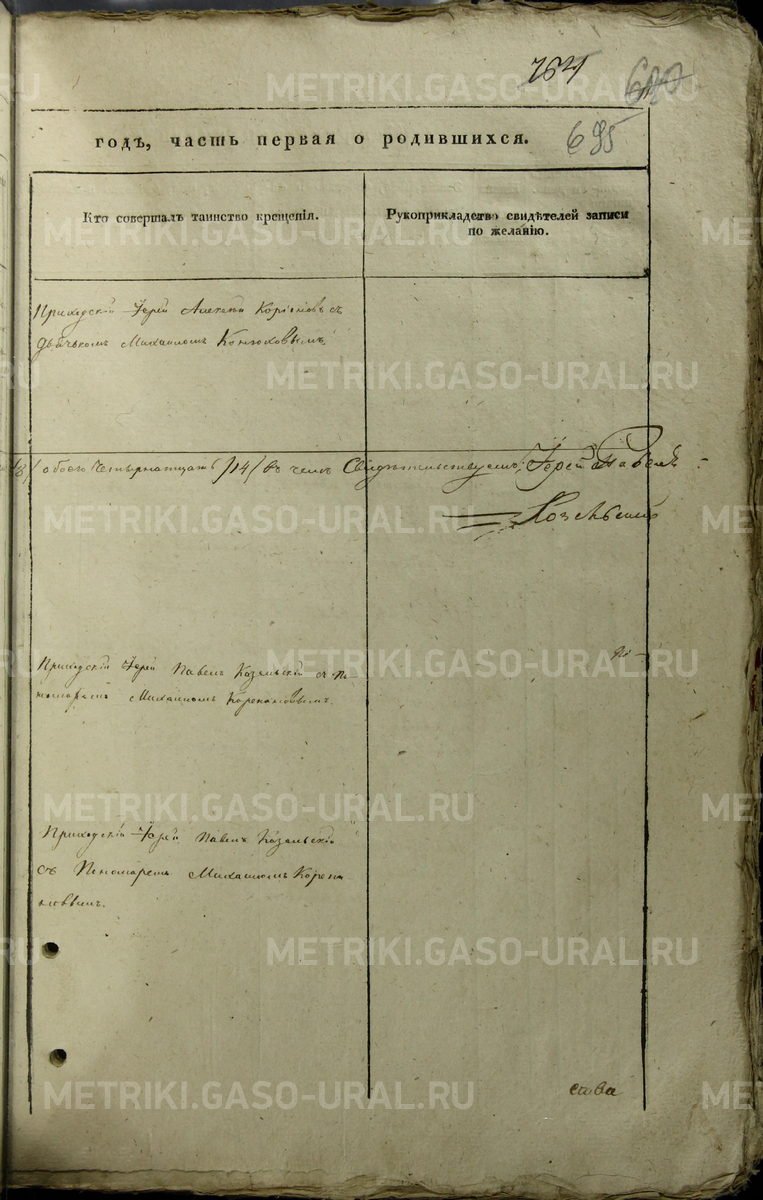 764
680
695
годѣ, часть первая о родившихся.
Кто совершалъ таинство крещенія.
Рукоприкладство свидѣтелей записи
по желанію.
Приходскій Іерей Алексій съ
дьячькомъ Михаиломъ Конюховымъ.
/8/ обоего Четырнатцать /14/ въ чемъ Свидѣтельствуемъ: Іерей Павелъ
Козельскій
Приходскій Іерей Павелъ Козельскій съ по
номаремъ Михаиломъ Корепановымъ.
Приходскій Іерей Павелъ Козельскій
съ Пономаремъ Михаиломъ Корепа
новымъ.
METRIKI.GASO-URAL.RU